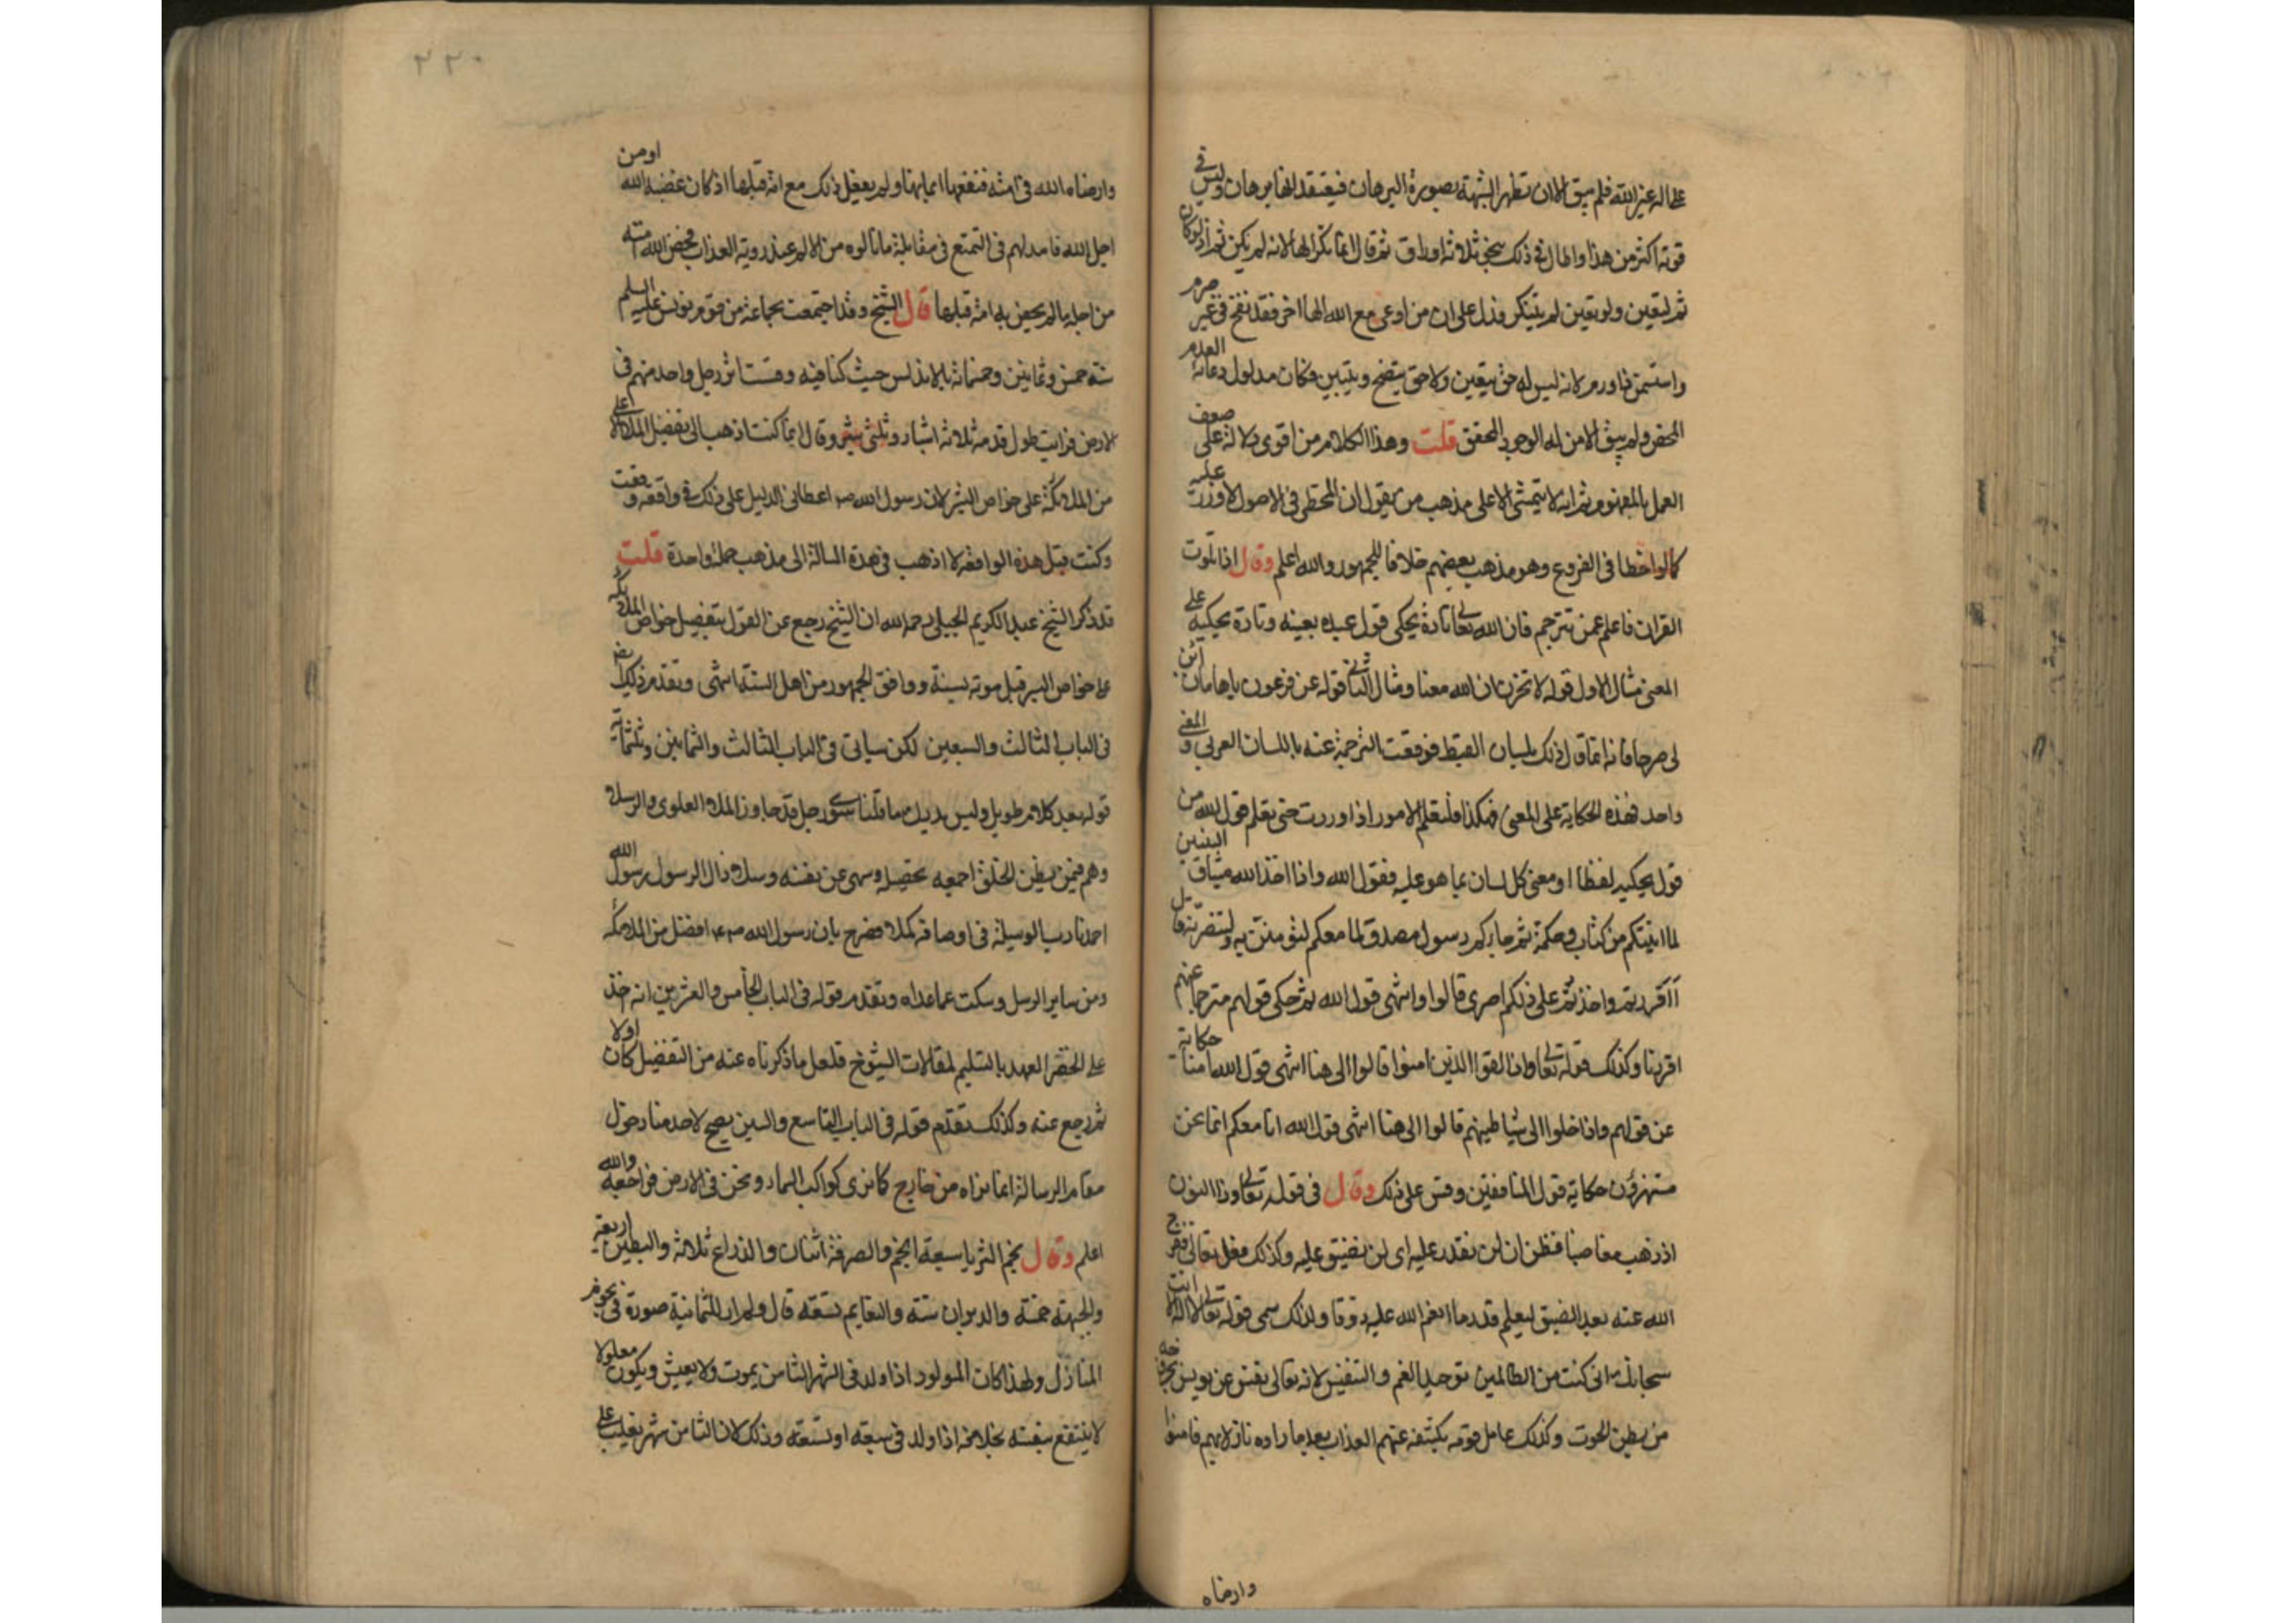 على اله غير الله فلم يبق الا ان تظهر الشبهة بصورة البرهان فيعتقد انها برهان وليس في
قوته اكثر من هذا واطال في ذلك بنحو ثلاثة اوراق ثم قال انما نكر الها لانه لم يكن ثم اذ لو كان
ثم لتعين ولو تعين لم يتنكر فدل على ان من ادعى مع الله الها اخر فقد نفخ في غير ضرم
واستسمن ذا ورم لانه ليس له حق يتعين ولا حق يتضح ويتبين فكان مدلول دعائه العدم
المحض ولم يبق الا من له الوجود المحقق قلت وهذا الكلام من اقوى دلالة على ضعف
العمل بالمفهوم ثم انه لا يتمشى الا على مذهب من يقول ان المخطئ في الاصول لا وزر عليه
كما لو اخطا في الفروع وهو مذهب بعضهم خلافا للجمهور والله اعلم وقال اذا تلوت
القران فاعلم عمن تترجم فان الله تعالى تارة يحكي قول عبده بعينه وتارة يحكيه على
المعنى مثال الاول قوله لا تحزن ان الله معنا ومثال الثاني قوله عن فرعون يا هامان ابن
لي صرحا فانه انما قال ذلك بلسان القبط فوقعت الترجمة عنه باللسان العربي والمعنى
واحد فهذه الحكاية على المعنى فهكذا فلتعلم الامور اذا وردت حتى تعلم قول الله من
قول يحكيه لفظا او معنى كل لسان بما هو عليه فقول الله واذا اخذ الله ميثاق النبيين
لما اتيتكم من كتاب وحكمة ثم جاءكم رسول مصدق لما معكم لتؤمنن به ولتنصرنه قال
أاقررتم واخذتم على ذلكم اصري قالوا وانتهى قول الله ثم حكى قولهم مترجما عنهم
اقررنا وكذلك قوله تعالى واذا لقوا الذين امنوا قالوا الى هنا انتهى قول الله امنا حكاية
عن قولهم واذا خلوا الى شياطينهم قالوا الى هنا انتهى قول الله انا معكم انما نحن
مستهزؤن حكاية قول المنافقين وقس على ذلك وقال في قوله تعالى وذا النون
اذ ذهب مغاضبا فظن ان لن نقدر عليه اي لن نضيق عليه وكذلك فعل تعالى ففرج
الله عنه بعد الضيق ليعلم قدر ما انعم الله عليه ذوقا ولذلك سمى قوله تعالى لا اله الا انت
سبحانك اني كنت من الظالمين توحيد الغم والتنفيس لانه تعالى نفس عن يونس بخروجه
من بطن الحوت وكذلك عامل قومه بكشفه عنهم العذاب بعد ما راوه نازلا بهم فامنوا
وارضاه
٢٢٠
وارضاه الله في امته فنفعها ايمانها ولم يفعل ذلك مع امة قبلها اذ كان غضبه لله او من
اجل الله فامد لهم في التمتع في مقابلة ما نالوه من الالم عند رؤية العذاب فخص الله امته
من اجله بما لم يخص به امة قبلها قال الشيخ وقد اجتمعت بجماعة من قوم يونس عليه السلام
سنة خمس وثمانين وخمسمائة بالاندلس حيث كنا فيه وقست اثر رجل واحد منهم في
الارض فرايت طول قدمه ثلاثة اشبار وثلثي شبر وقال انما كنت اذهب الى تفضيل الملا الاعلى
من الملائكة على خواص البشر لان رسول الله صم اعطاني الدليل على ذلك في واقعة وقعت
وكنت قبل هذه الواقعة لا اذهب في هذه المسالة الى مذهب جملة واحدة قلت
قد ذكر الشيخ عبد الكريم الجيلي رحمه الله ان الشيخ رجع عن القول بتفضيل خواص الملائكة
على خواص البشر قبل موته بسنة ووافق الجمهور من اهل السنة انتهى وتقدم ذلك ايضا
في الباب الثالث والسبعين لكن سياتي في الباب الثالث والثمانين وثلثمائة
قوله بعد كلام طويل وليس بيدك مما قلناه سوى رجل قد جاوز الملا العلوي والرسلا
وهم فيمن يظن الخلق اجمعه بحصيله وسهى عن نفسه وسلا ذاك الرسول رسول الله
احمدنا رب الوسيلة في اوصافه كملا فصرح بان رسول الله صم افضل من الملائكة
ومن ساير الرسل وسكت عما عداه وتقدم قوله في الباب الخامس والعشرين انه اخذ
على الخضر العهد بالتسليم لمقالات الشيوخ فلعل ما ذكرناه عنه من التفضيل كان اولا
ثم رجع عنه وكذلك تقدم قوله في الباب التاسع والستين يصح لاحد منا دخول
مقام الرسالة انما نراه من خارج كما نرى كواكب السماء ونحن في الارض فراجعه والله
اعلم وقال نجم الثريا سبعة انجم والصرفة اثنان والذراع ثلاثة والبطين اربعة
والجبهة خمسة والدبران ستة والنعايم تسعة قال ولم ار للثمانية صورة في نجوم
المنازل ولهذا كان المولود اذا ولد في الشهر الثامن يموت ولا يعيش ويكون معلولا
لا ينتفع بنفسه بخلافه اذا ولد في سبعة او تسعة وذلك لان الثامن شهر يغلب على